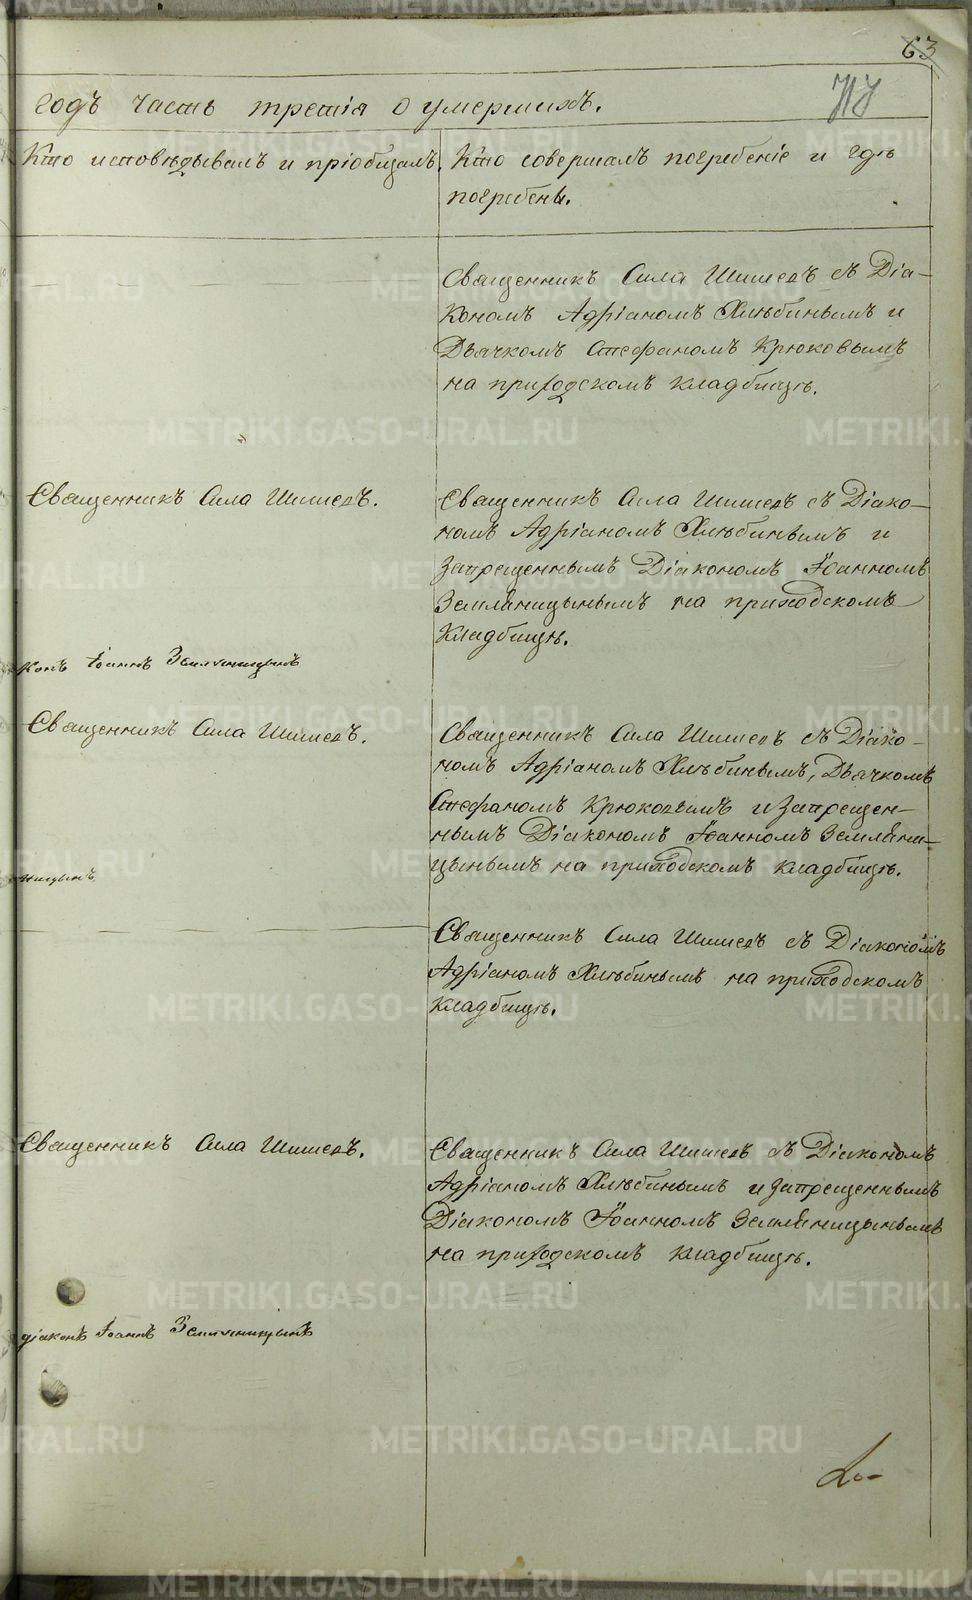 63
годъ часть третія о умершихъ.
Кто исповѣдывалъ и пріобщалъ.
Кто совершалъ погребеніе и гдѣ
погребены.
Священникъ Сила Шишевъ съ Діа-
кономъ Адріаномъ Хлѣбинымъ и
Дьячкомъ Стефаномъ Крюковымъ
на приходскомъ кладбищѣ.
Священникъ Сила Шишевъ.
Священникъ Сила Шишевъ съ Діако-
номъ Адріаномъ Хлѣбинымъ и
Запрещеннымъ Діакономъ Іоанномъ
Земляницынымъ на приходскомъ
кладбищѣ.
конъ Іоаннъ Земляницынъ
Священникъ Сила Шишевъ.
Священникъ Сила Шишевъ съ Діако-
номъ Адріаномъ Хлѣбинымъ, Дьячкомъ
Стефаномъ Крюковымъ и Запрещен-
нымъ Діакономъ Іоанномъ Земляни-
цынымъ на приходскомъ кладбищѣ.
ницынъ
Священникъ Сила Шишевъ съ Діакономъ
Адріаномъ Хлѣбинымъ на приходскомъ
кладбищѣ.
Священникъ Сила Шишевъ.
Священникъ Сила Шишевъ съ Діакономъ
Адріаномъ Хлѣбинымъ и запрещеннымъ
Діакономъ Іоанномъ Земляницынымъ
на приходскомъ кладбищѣ.
діаконъ Іоаннъ Земляницынъ
METRIKI.GASO-URAL.RU